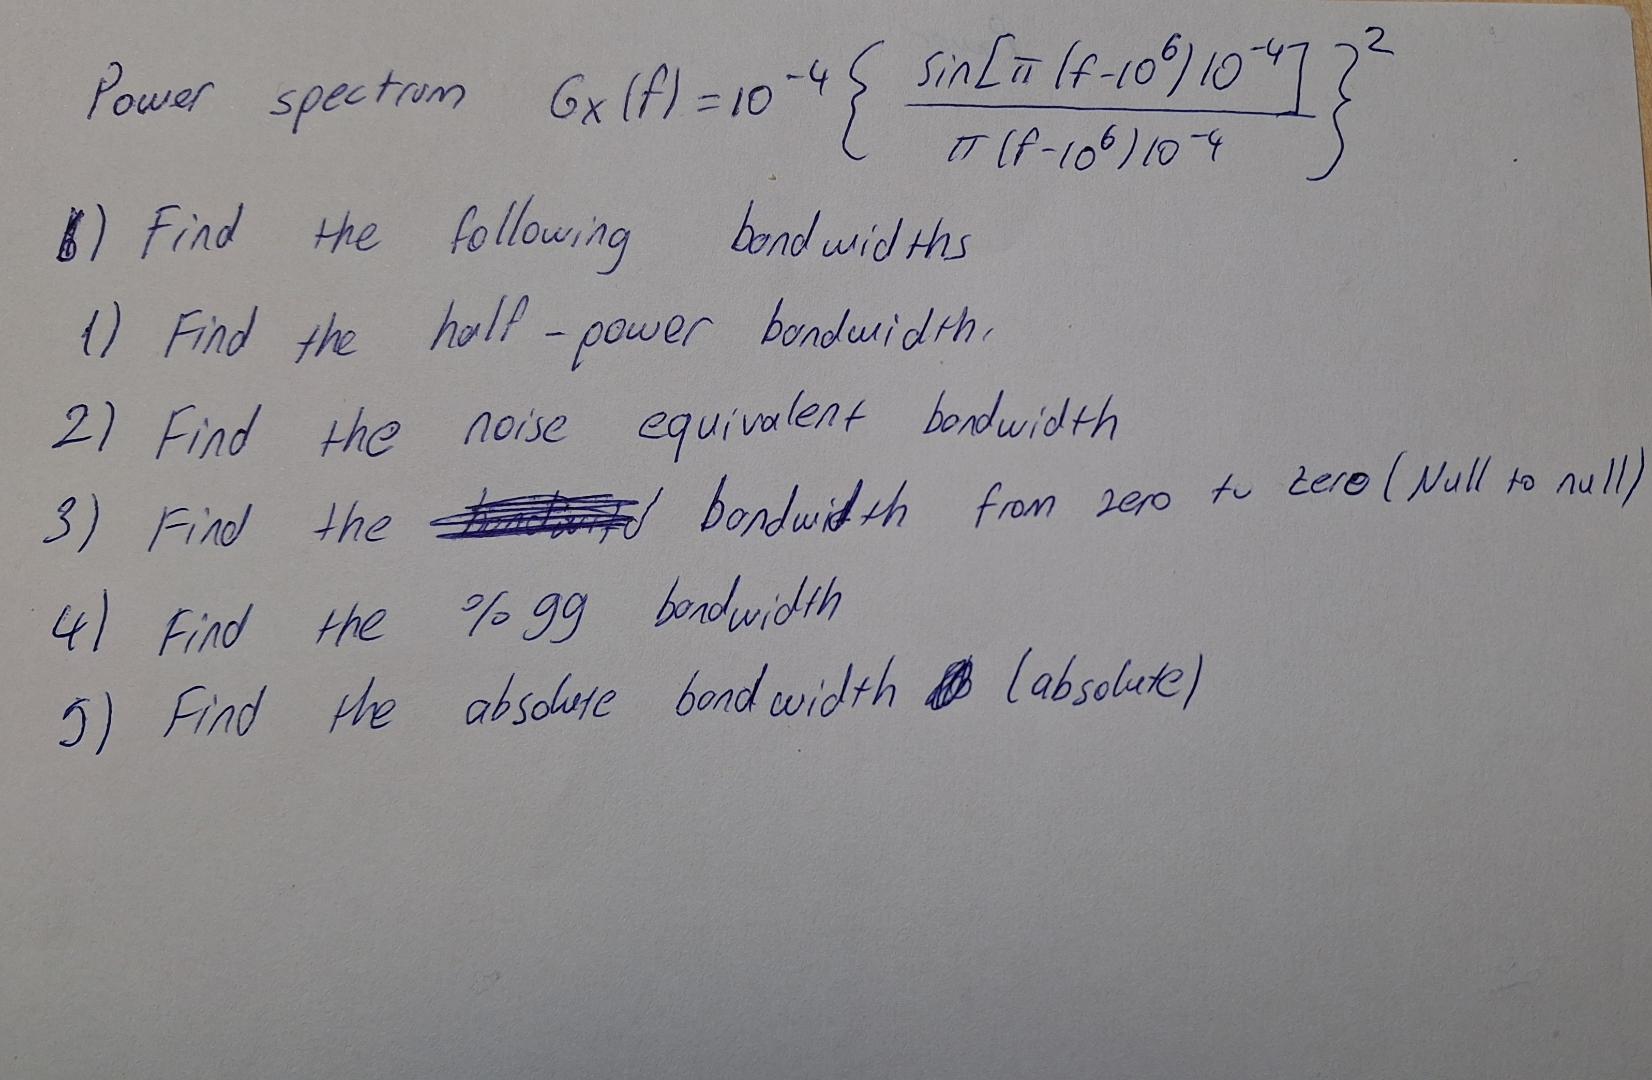 Power spectrum Gx(f) = 10^-4 { sin[π(f-10^6)10^-4] / π(f-10^6)10^-4 }^2
) Find the following bandwidths
1) Find the half-power bandwidth.
2) Find the noise equivalent bandwidth
3) Find the bandwidth from zero to zero (Null to null)
4) Find the %99 bandwidth
5) Find the absolute bandwidth (absolute)